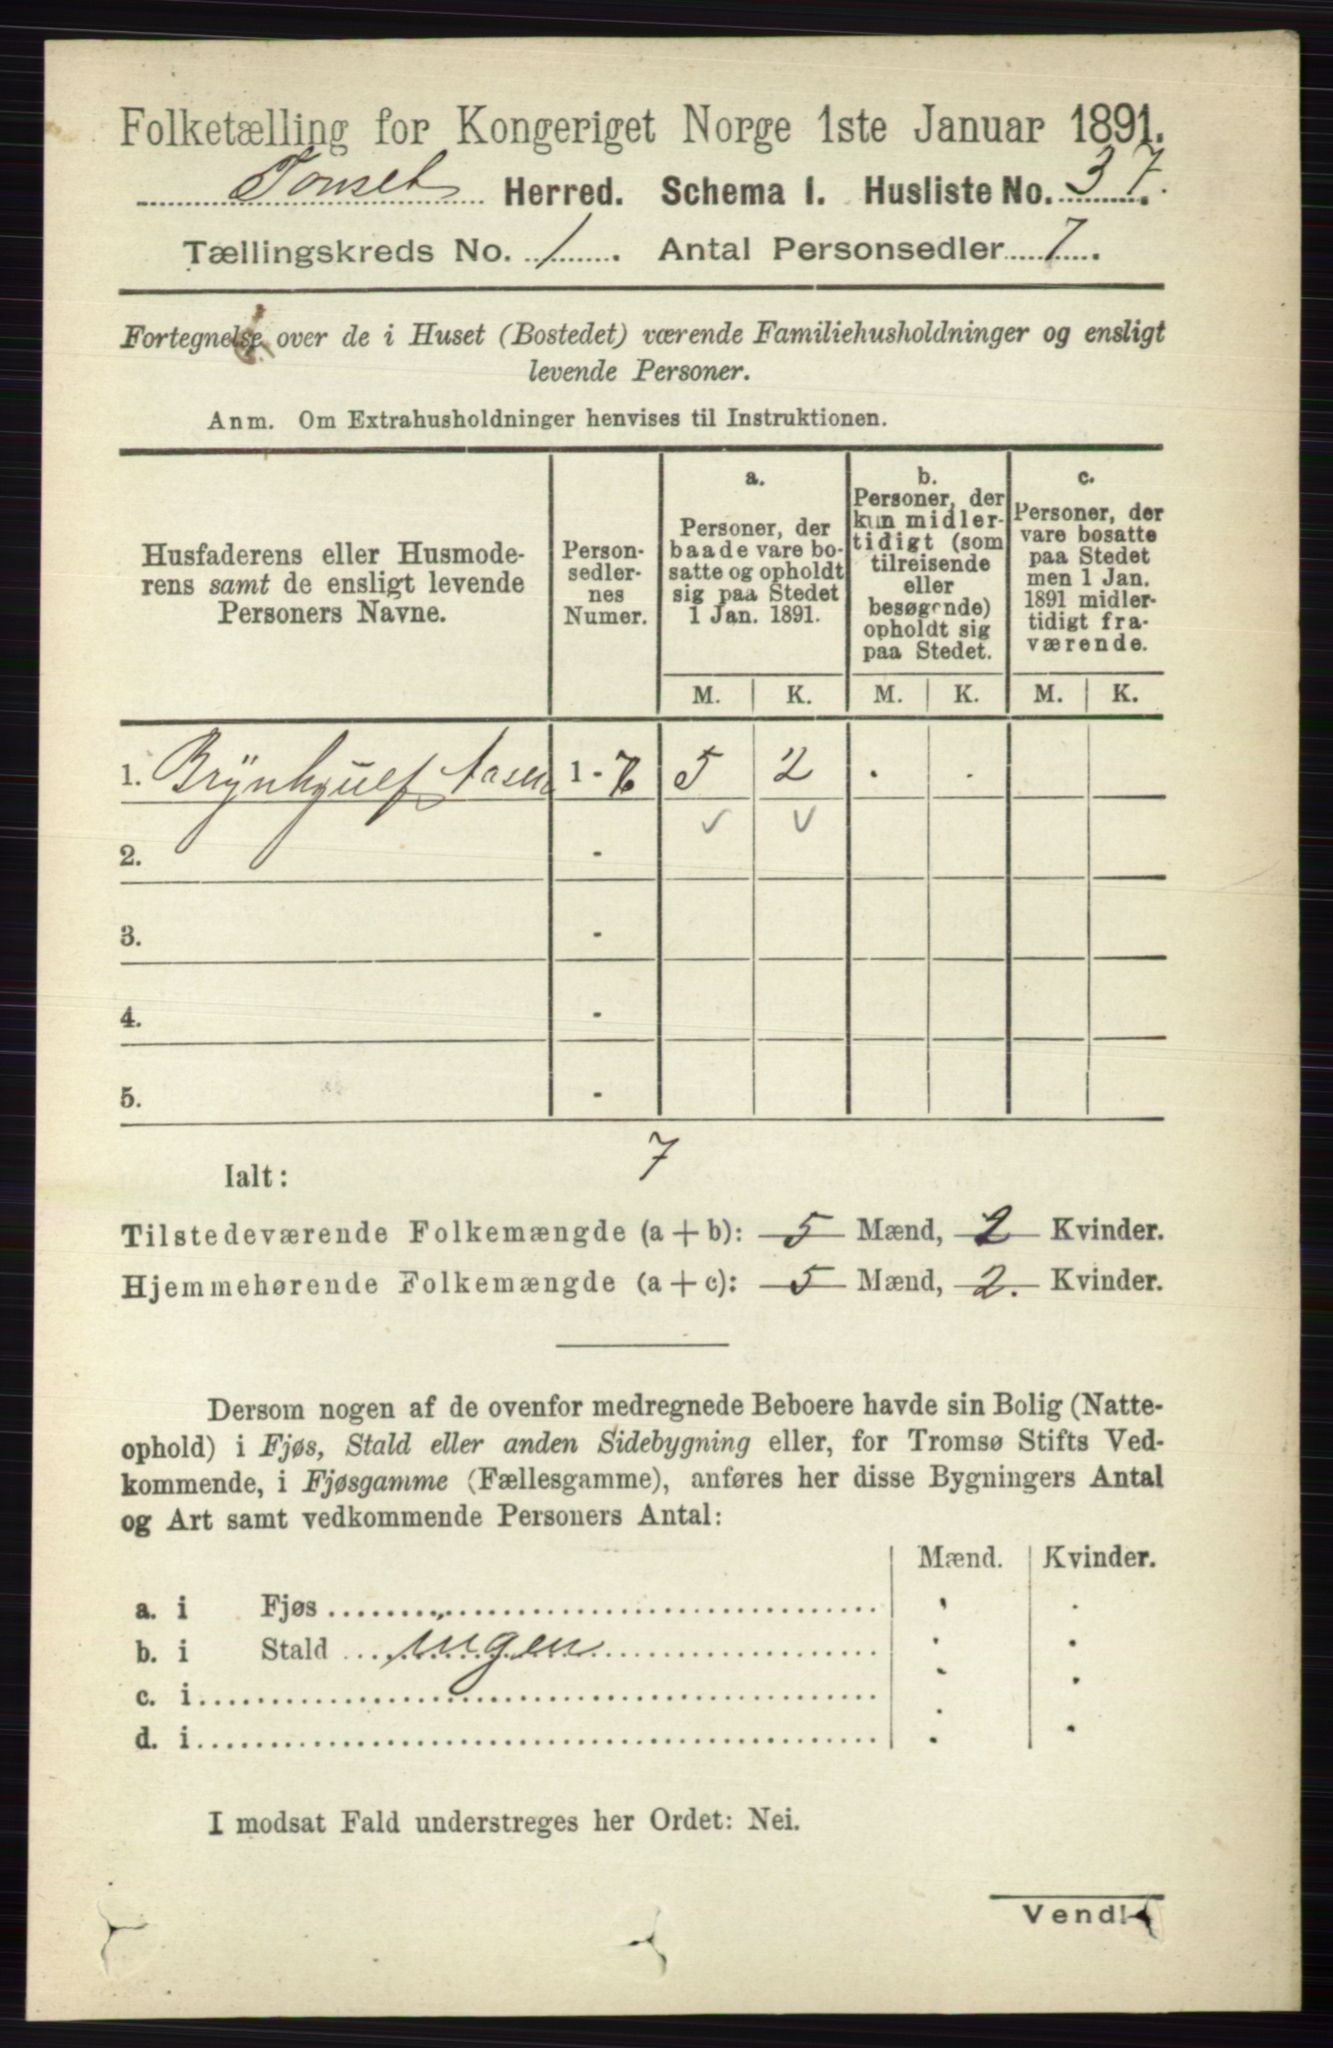 Folketælling for Kongeriget Norge 1ste Januar 1891.
Tonset Herred. Schema I. Husliste No. 37.
Tællingskreds No. 1. Antal Personsedler 7.
Fortegnelse over de i Huset (Bostedet) værende Familiehusholdninger og ensligt
levende Personer.
Anm. Om Extrahusholdninger henvises til Instruktionen.
Husfaderens eller Husmode-
rens samt de ensligt levende
Personers Navne.
Person-
sedler-
nes
Numer.
a.
Personer, der
baade vare bo-
satte og opholdt
sig paa Stedet
1 Jan. 1891.
b.
Personer, der
kun midler-
tidigt (som
tilreisende
eller
besøgende)
opholdt sig
paa Stedet.
c.
Personer, der
vare bosatte
paa Stedet
men 1 Jan.
1891 midler-
tidigt fra-
værende.
M. K. M. K. M. K.
1. Brynhjulf Aasen 1 - 7 5 2 . .
2. -
3. -
4. -
5. -
7
Ialt:
Tilstedeværende Folkemængde (a + b): 5 Mænd, 2 Kvinder.
Hjemmehørende Folkemængde (a + c): 5 Mænd, 2. Kvinder.
Dersom nogen af de ovenfor medregnede Beboere havde sin Bolig (Natte-
ophold) i Fjøs, Stald eller anden Sidebygning eller, for Tromsø Stifts Ved-
kommende, i Fjøsgamme (Fællesgamme), anføres her disse Bygningers Antal
og Art samt vedkommende Personers Antal:
Mænd. Kvinder.
a. i Fjøs
b. i Stald ingen
c. i
d. i
I modsat Fald understreges her Ordet: Nei.
Vend!